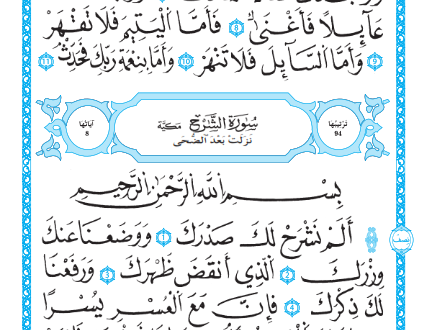 عَآئِلًا فَأَغْنَىٰ 8 فَأَمَّا الْيَتِيمَ فَلَا تَقْهَرْ
9 وَأَمَّا السَّآئِلَ فَلَا تَنْهَرْ 10 وَأَمَّا بِنِعْمَةِ رَبِّكَ فَحَدِّثْ 11
تَرْتِيبُهَا 94
سُورَةُ الشَّرْحِ مَكِّيَّة
نَزَلَتْ بَعْدَ الضُّحَى
آيَاتُهَا 8
بِسْمِ اللَّهِ الرَّحْمَٰنِ الرَّحِيمِ
أَلَمْ نَشْرَحْ لَكَ صَدْرَكَ 1 وَوَضَعْنَا عَنكَ
نصف
وِزْرَكَ 2 الَّذِي أَنقَضَ ظَهْرَكَ 3 وَرَفَعْنَا
لَكَ ذِكْرَكَ 4 فَإِنَّ مَعَ الْعُسْرِ يُسْرًا